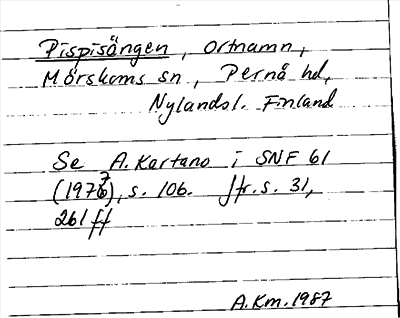 Pispisängen, Ortnamn,
Mörskoms sn, Pernå hd,
Nylandsl. Finland
Se A. Kartano i SNF 61
(1977), s. 106. Jfr. s. 31,
261 ff
A.Km. 1987